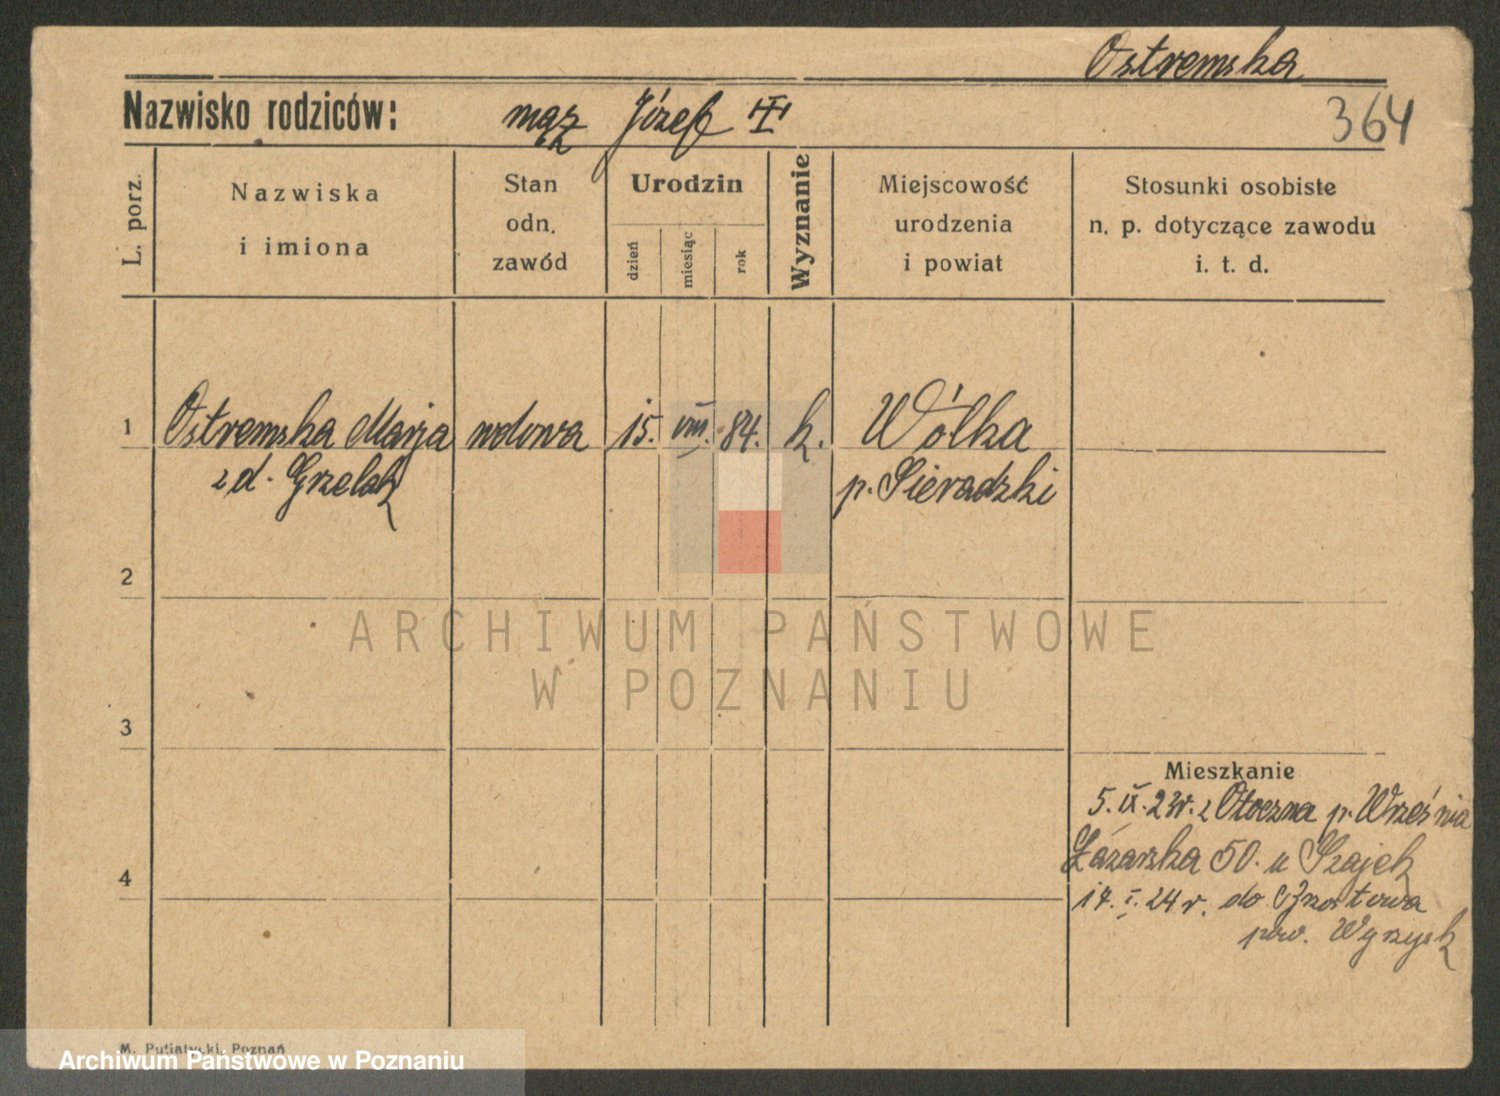 Ostremska
Nazwisko rodziców: mąż Józef
364
L. porz.
Nazwiska
i imiona
Stan
odn.
zawód
Urodzin
dzień
miesiąc
rok
Wyznanie
Miejscowość
urodzenia
i powiat
Stosunki osobiste
n. p. dotyczące zawodu
i. t. d.
1 Ostremska Marja wdowa 15. VIII. 84. k. Wólka
z d. Grzelak p. Sieradzki
2
ARCHIWUM PAŃSTWOWE
W POZNANIU
3
Mieszkanie
5. IX. 23r. z Otoczna p. Września
Łazarska 50. u Szajek
4
17. I. 24 r. do
pow. Wyrzysk
M. Putiatycki, Poznań
Archiwum Państwowe w Poznaniu